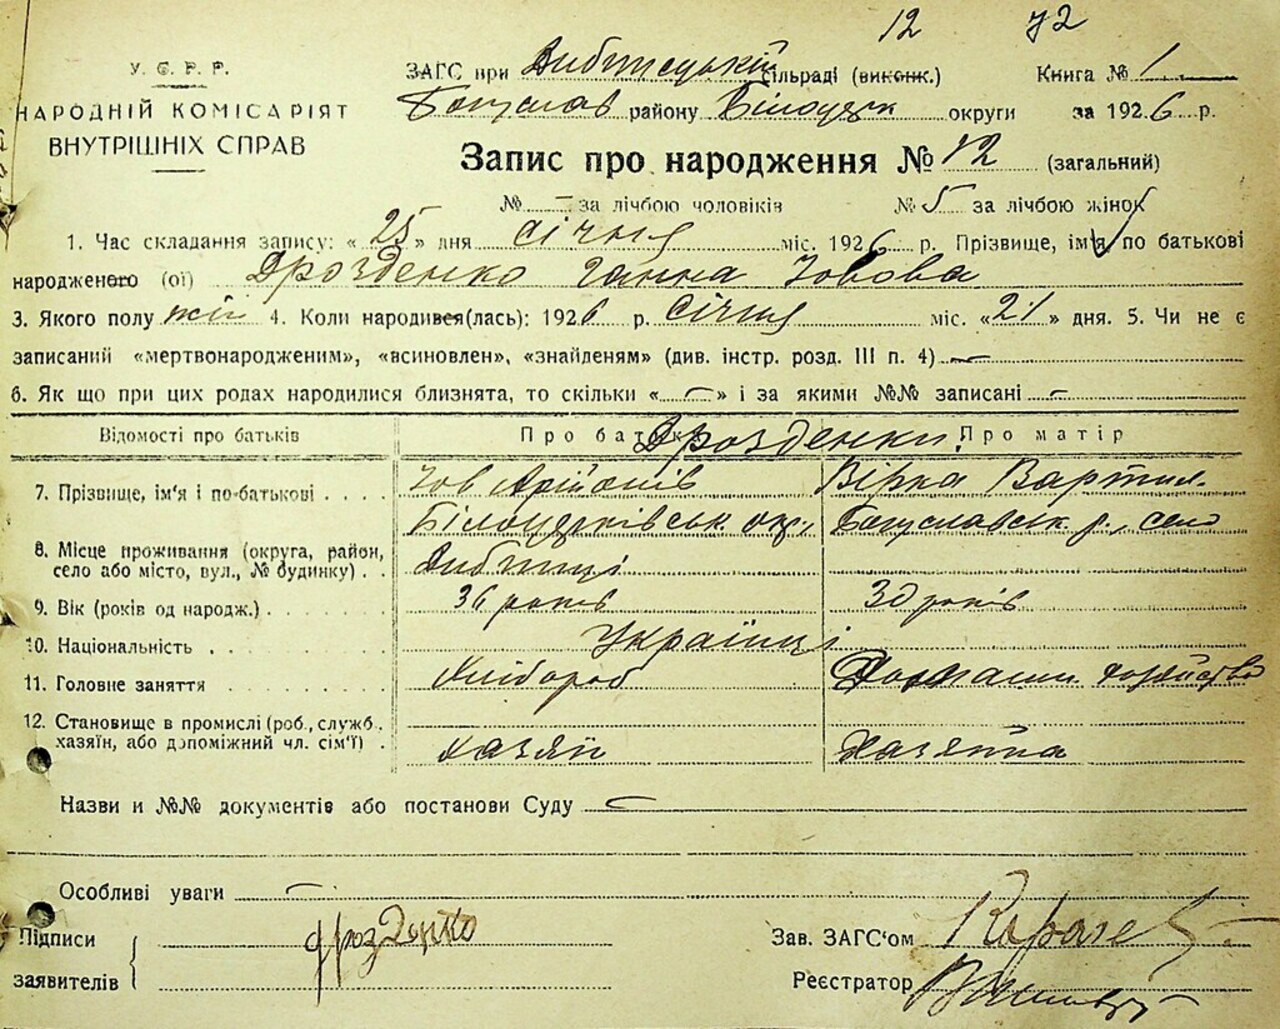 12 72
У. С. Р. Р.
НАРОДНІЙ КОМІСАРІЯТ
ВНУТРІШНІХ СПРАВ
ЗАГС при Дибинецькій сільраді (виконк.) Книга № 1
Богуслав району Білоцерк округи за 1926 р.
Запис про народження № 12 (загальний)
№ — за лічбою чоловіків № 5 за лічбою жінок
1. Час складання запису: « 25 » дня січня міс. 1926 р. Прізвище, ім'я, по батькові
народженого (ої) Дрозденко Ганна Іовова
3. Якого полу жін 4. Коли народився(лась): 1926 р. січня міс. « 21 » дня. 5. Чи не є
записаний «мертвонародженим», «всиновлен», «знайденям» (див. інстр. розд. III п. 4) —
6. Як що при цих родах народилися близнята, то скільки « — » і за якими №№ записані —
Відомості про батьків Про батька Дрозденки Про матір
7. Прізвище, ім'я і по-батькові . . . . Іов Вірка
Білоцерківськ. окр., Богуславськ. р., село
8. Місце проживання (округа, район,
село або місто, вул., № будинку) . . Дибинці
9. Вік (років од народж.) . . . . . . . 36 років 30 років
10. Національність . . . . . . . . . Українці
11. Головне заняття . . . . . . . . Хлібороб Домашн. хозяйство
12. Становище в промислі (роб., служб.,
хазяїн, або допоміжний чл. сім'ї) . хазяїн Хазяйка
Назви и №№ документів або постанови Суду —
Особливі уваги —
Підписи
заявителів
Дрозденко
Зав. ЗАГС'ом
Реєстратор